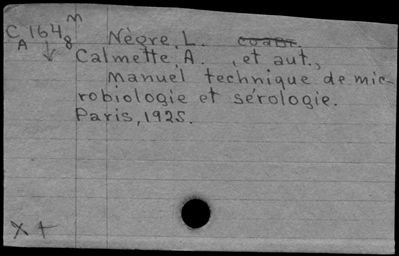 C 1648 m Nègre, L. coaut.
A Calmette, A. , et aut.,
manuel technique de mic-
robiologie et sérologie.
Paris, 1925.
X +